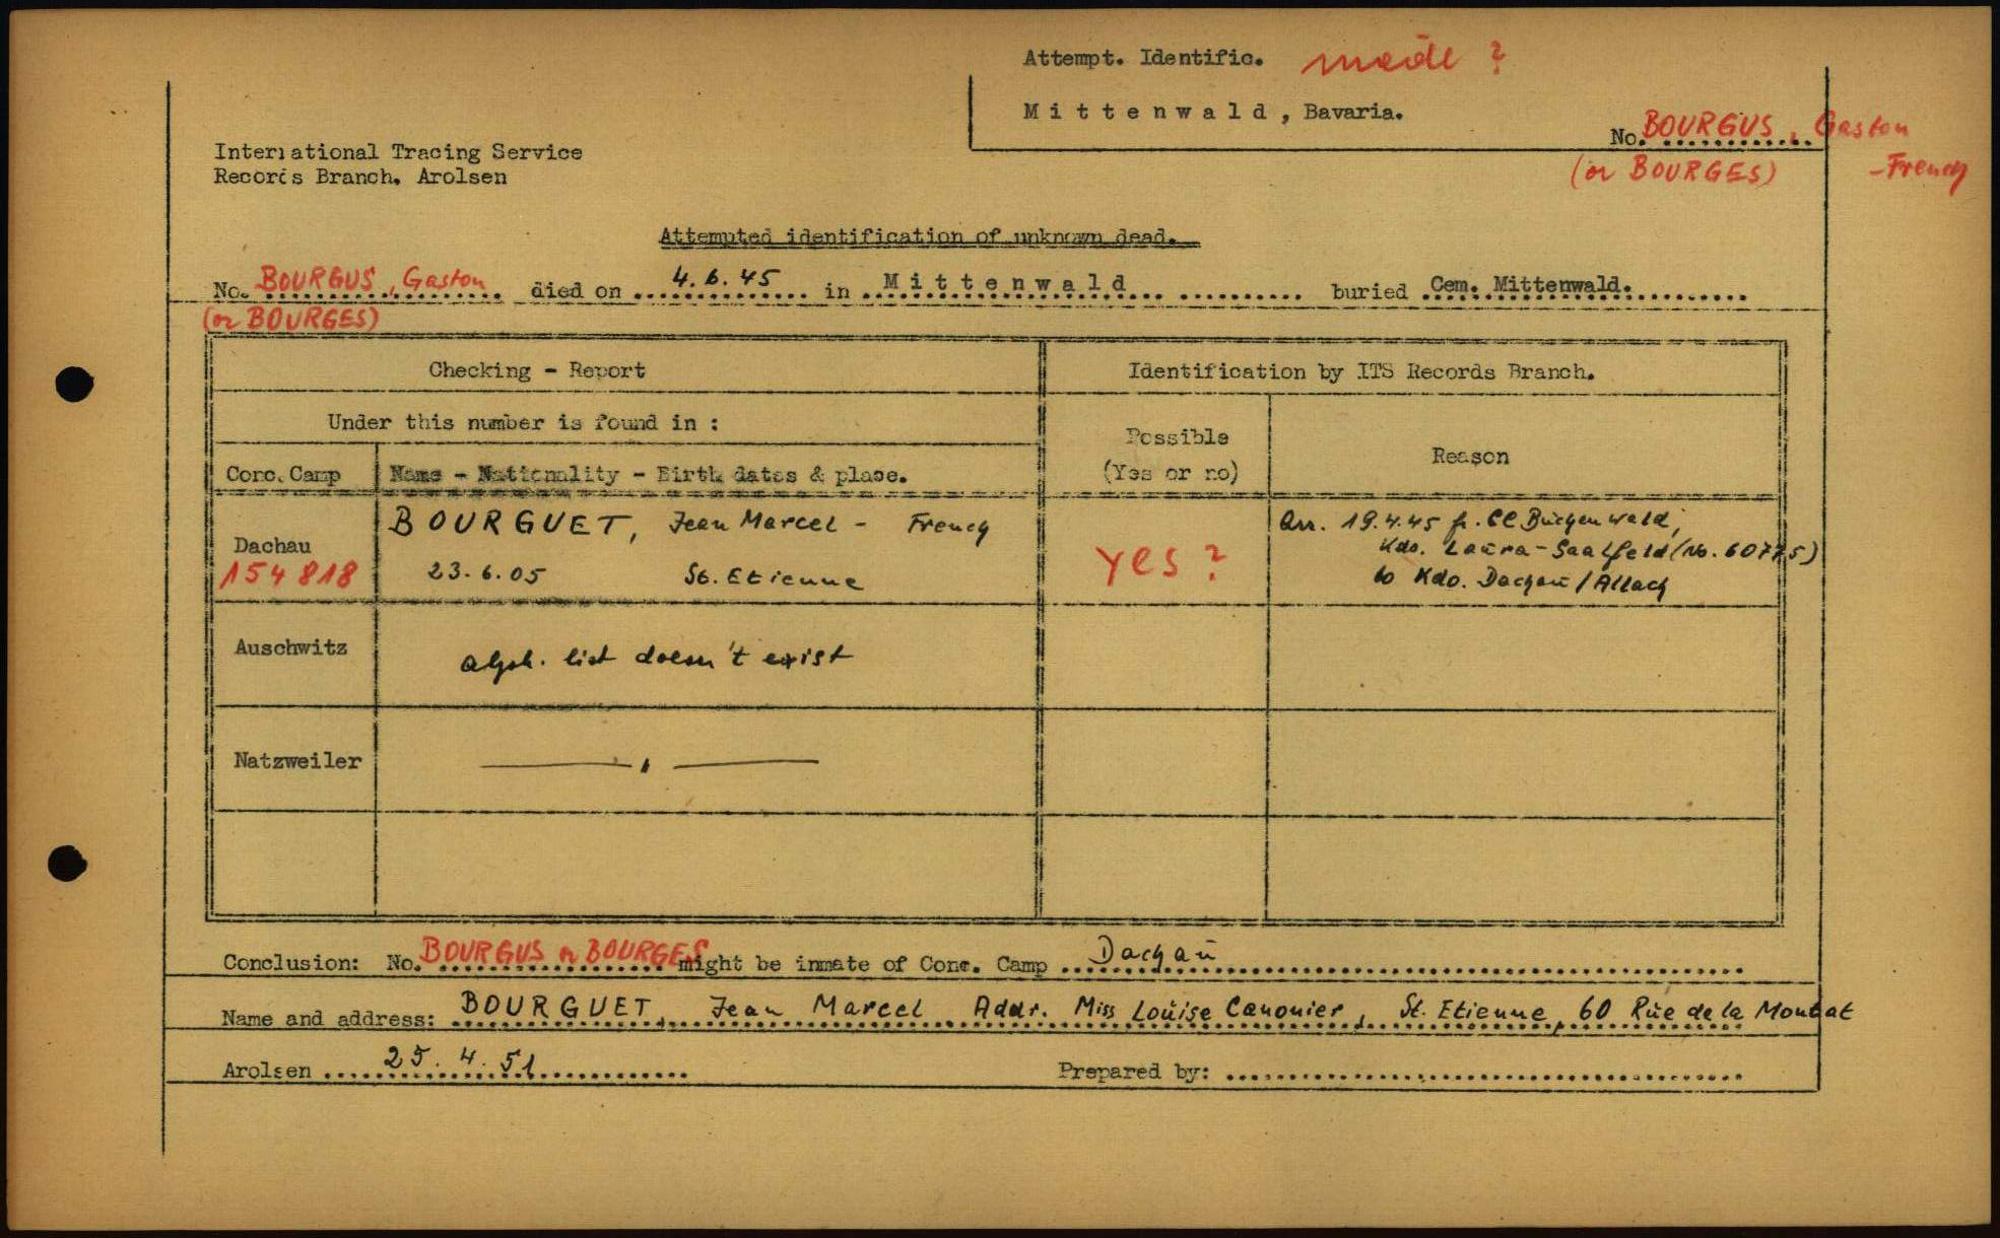 Attempt. Identific. made ?
Mittenwald, Bavaria.
No. BOURGUS, Gaston
(or BOURGES) - French
International Tracing Service
Records Branch. Arolsen
Attempted identification of unknown dead.
No. BOURGUS, Gaston died on 4.6.45 in Mittenwald buried Cem. Mittenwald.
(or BOURGES)
Checking - Report
Identification by ITS Records Branch.
Under this number is found in :
Possible
(Yes or no)
Reason
Conc. Camp
Name - Nationality - Birth dates & place.
Dachau
154818
BOURGUET, Jean Marcel - French
23.6.05 St. Etienne
yes ?
Arr. 19.4.45 fr. CC Buchenwald,
Kdo. Laura-Saalfeld (No. 60775)
to Kdo. Dachau / Allach
Auschwitz
alph. list doesn't exist
Natzweiler
— " —
Conclusion: No. BOURGUS or BOURGES might be inmate of Conc. Camp Dachau
Name and address: BOURGUET, Jean Marcel Addr. Miss Louise Canonier, St. Etienne, 60 Rue de la Montat
Arolsen 25.4.51
Prepared by: